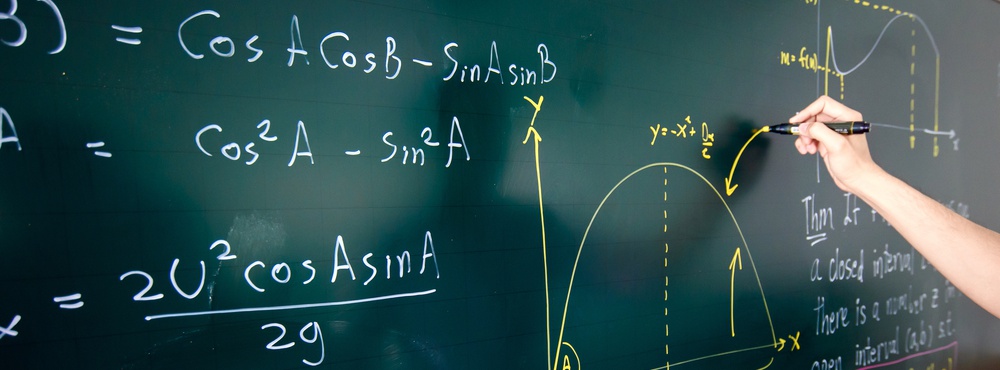 ) = Cos A Cos B - Sin A sin B
A = Cos² A - Sin² A
x = 2U² cos A sin A / 2g
Y
X
A
m = f(n)
x
Thm If
a closed interval
there is a number z
open interval (a,b) s.t.